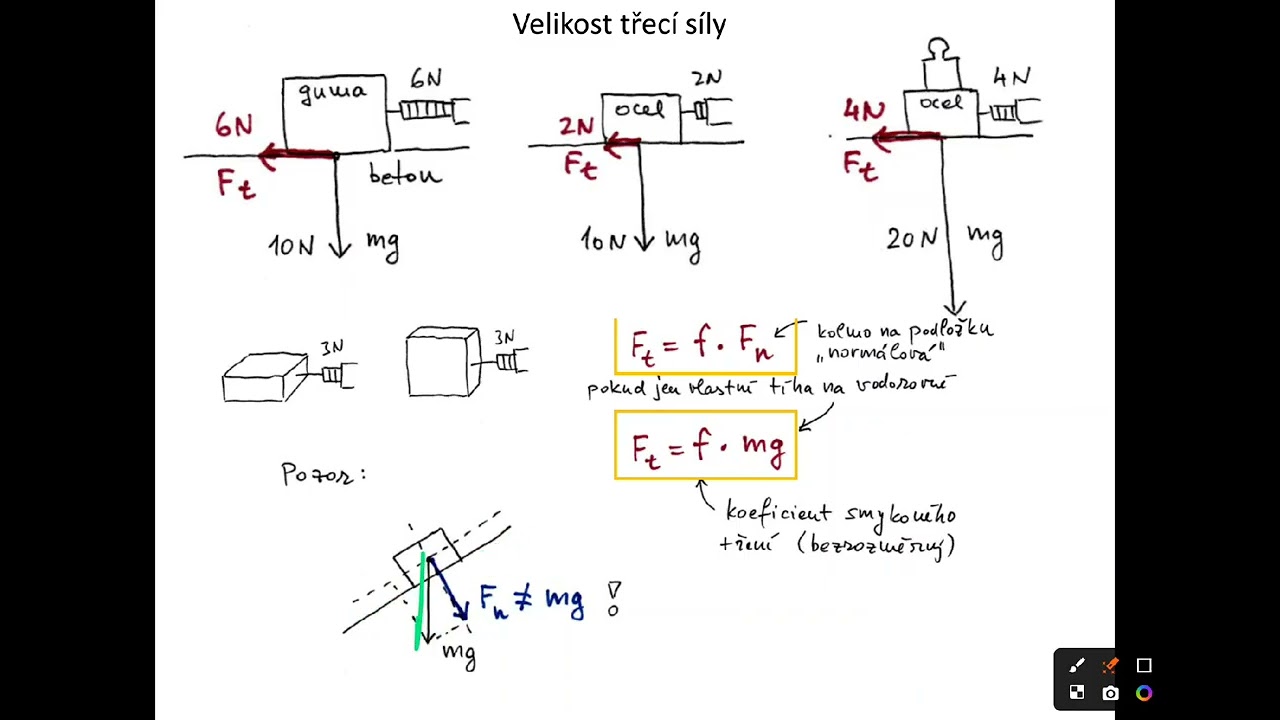 Velikost třecí síly
guma
6N
6N
Ft
beton
10N
mg
ocel
2N
2N
Ft
10N
mg
ocel
4N
4N
Ft
20N
mg
3N
3N
Ft = f · Fn
kolmo na podložku
„normálová"
pokud jen vlastní tíha na vodorovné
Ft = f · mg
koeficient smykového
tření (bezrozměrný)
Pozor:
Fn ≠ mg !
mg